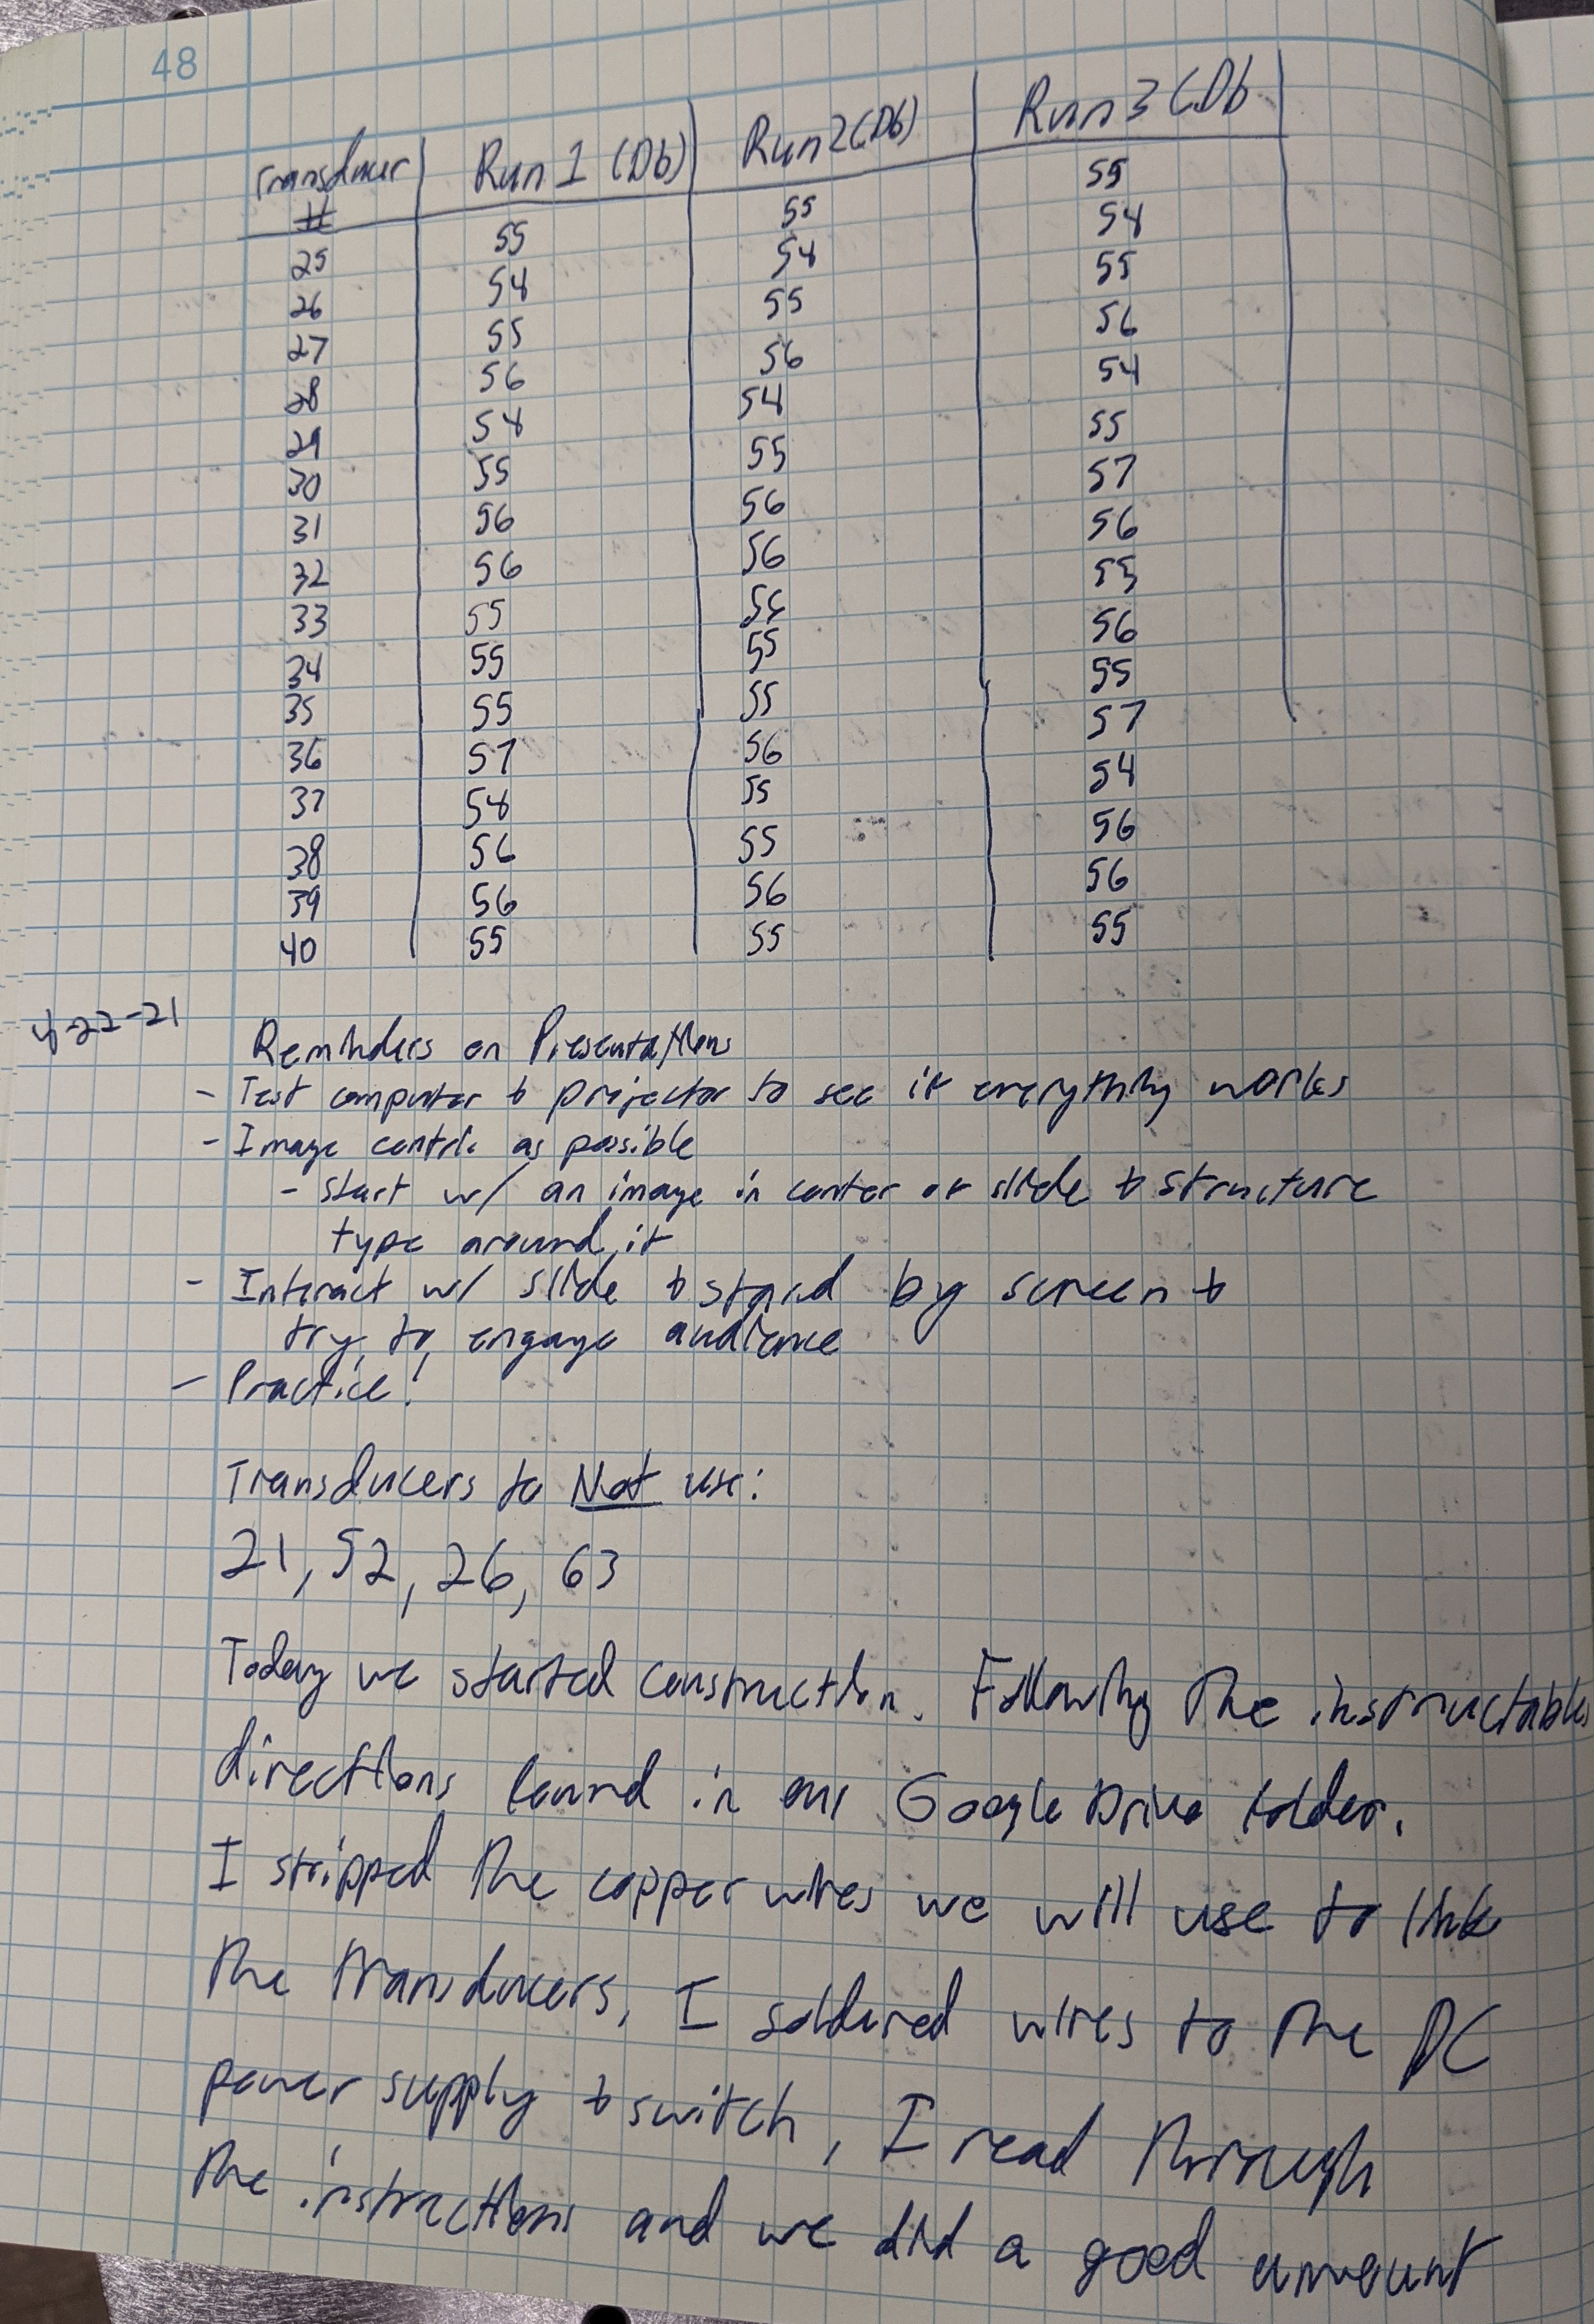 48
Transducer # Run 1 (Db) Run 2 (Db) Run 3 (Db
25 55 55 55
26 54 54 54
27 55 55 55
28 56 56 56
29 54 54 54
30 55 55 55
31 56 56 57
32 56 56 56
33 55 56 55
34 55 55 56
35 55 55 55
36 57 56 57
37 54 55 54
38 56 55 56
39 56 56 56
40 55 55 55
4-22-21
Reminders on Presentations
- Test computer & projector to see if everything works
- Image centric as possible
- start w/ an image in center of slide & structure
type around it
- Interact w/ slide & stand by screen &
try to engage audience
- Practice!
Transducers to Not use:
21, 52, 26, 63
Today we started construction. Following the instructables
directions found in our Google Drive folder.
I stripped the copper wires we will use to link
the transducers, I soldered wires to the DC
power supply & switch, I read through
the instructions and we did a good amount